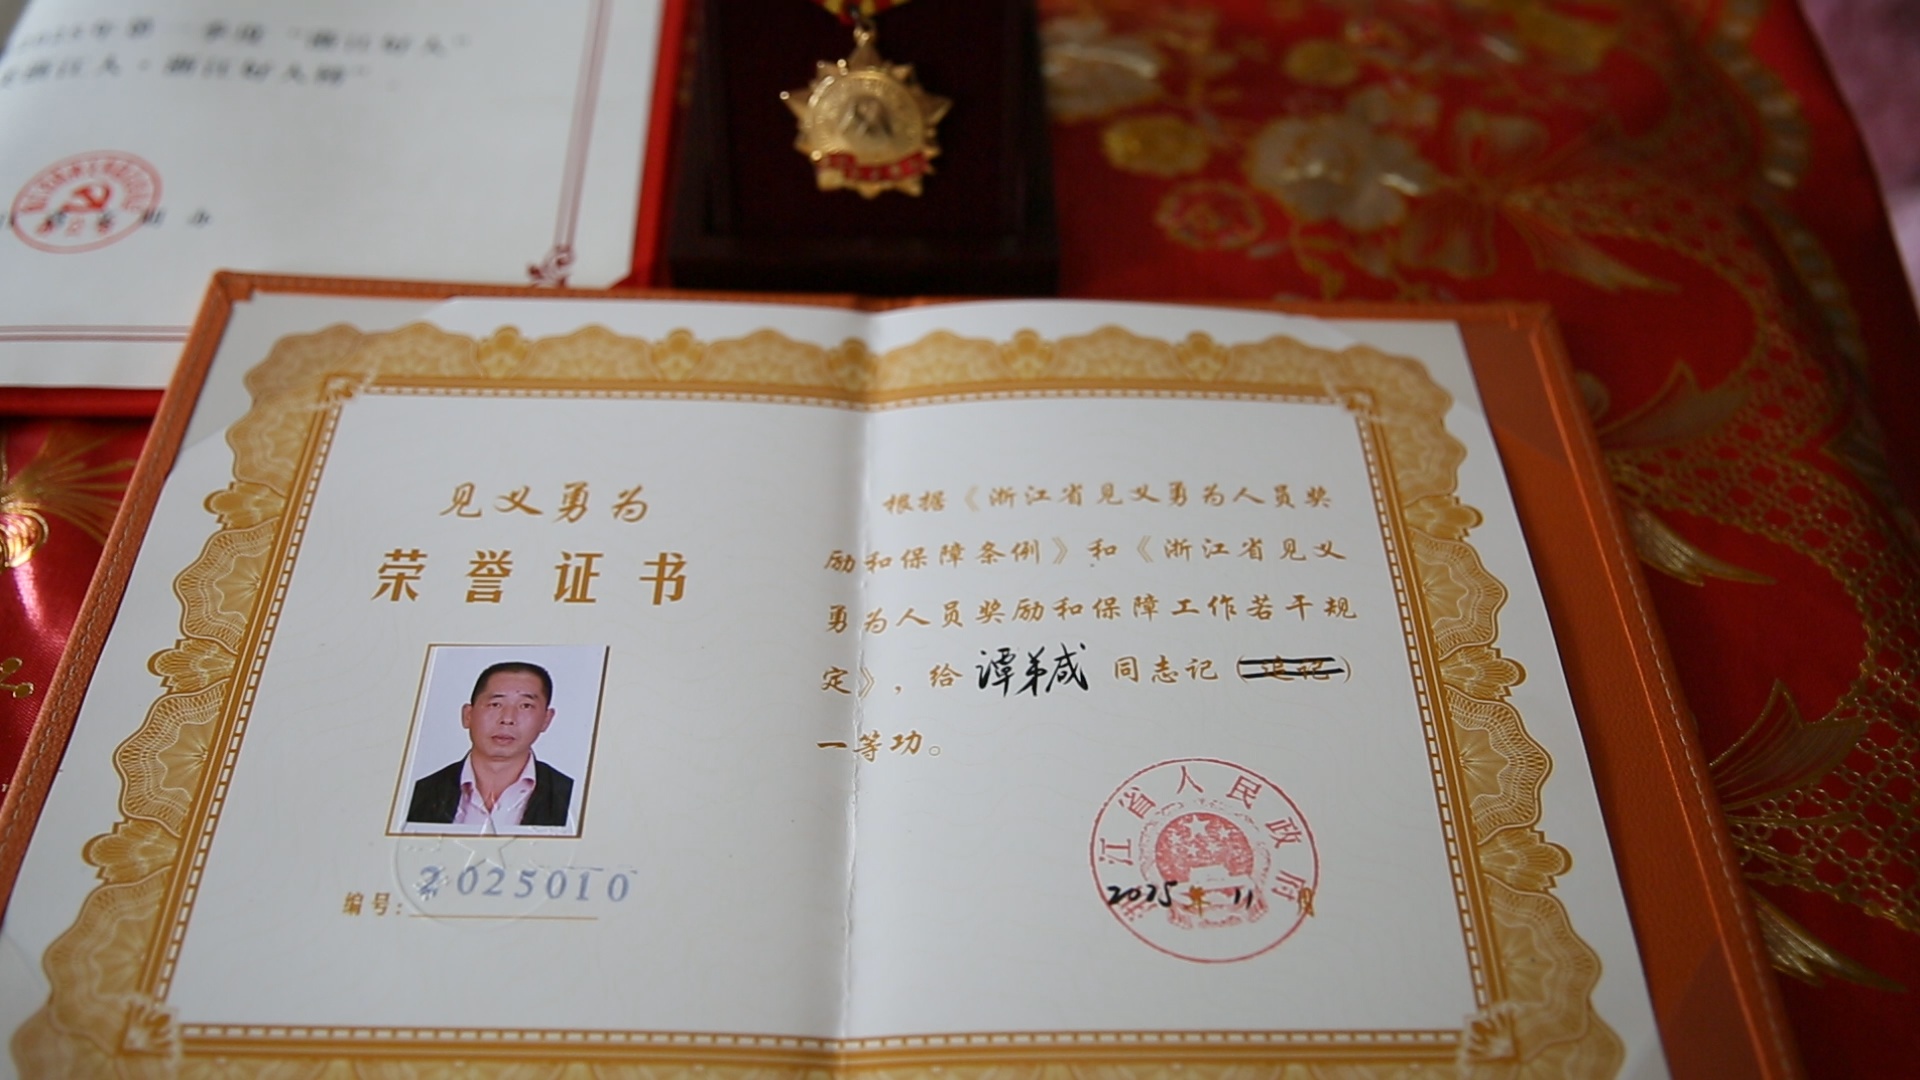 见义勇为
荣誉证书
2025010
编号:
根据《浙江省见义勇为人员奖
励和保障条例》和《浙江省见义
勇为人员奖励和保障工作若干规
定》，给谭弟咸同志记（追记）
一等功。
浙江省人民政府
2025年11月